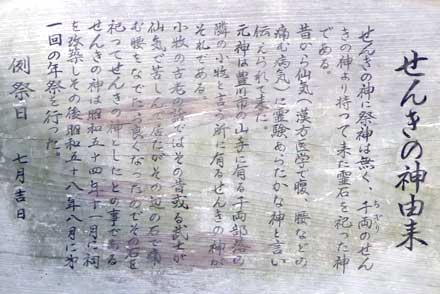 せんきの神由来
せんきの神に祭神は無く、千両のせん
きの神より持って来た霊石を祀った神
である。
昔から仙気(漢方医学で腹、腰などの
痛む病気)に霊験あらたかな神と言い
伝えられて来た。
元神は豊川市の山寺に有る千両部落の
隣の小牧と言う所に有るせんきの神が
それである。
小牧の古老の話ではその昔或る武士が
仙気で苦しんで居たがその辺の石で痛
む腰をなでたら良くなったのでその石を
祀ってせんきの神としたとの事である
せんきの神は昭和五十四年十一月に祠
を改築しその後昭和五十八年八月に第
一回の年祭を行った。
例祭日 七月吉日